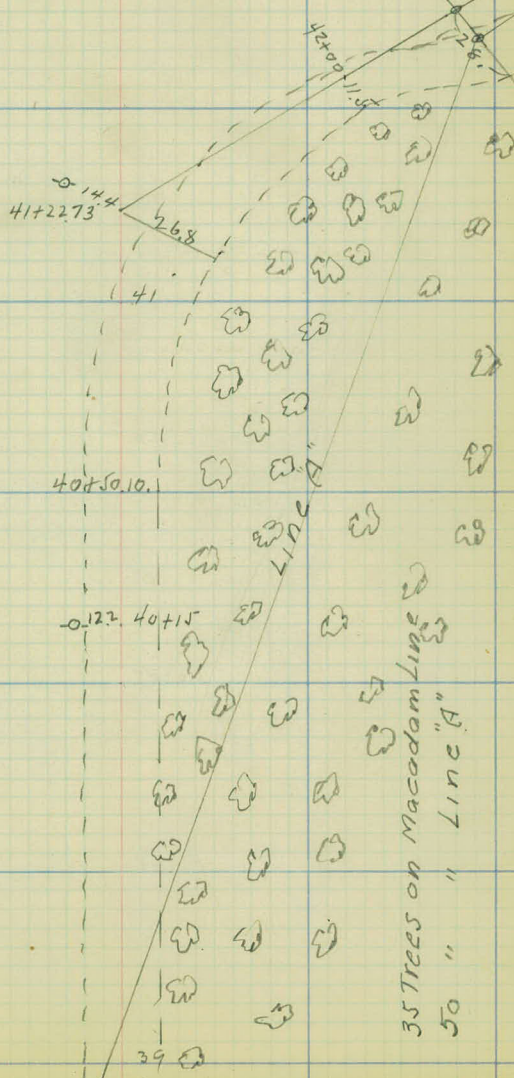 42+00
11.5
28.
-0-14.4
41+22.73
26.8
41
40+50.10.
Line "A"
-0-12.2. 40+15
35 Trees on Macadam Line
50 " " Line "A"
39